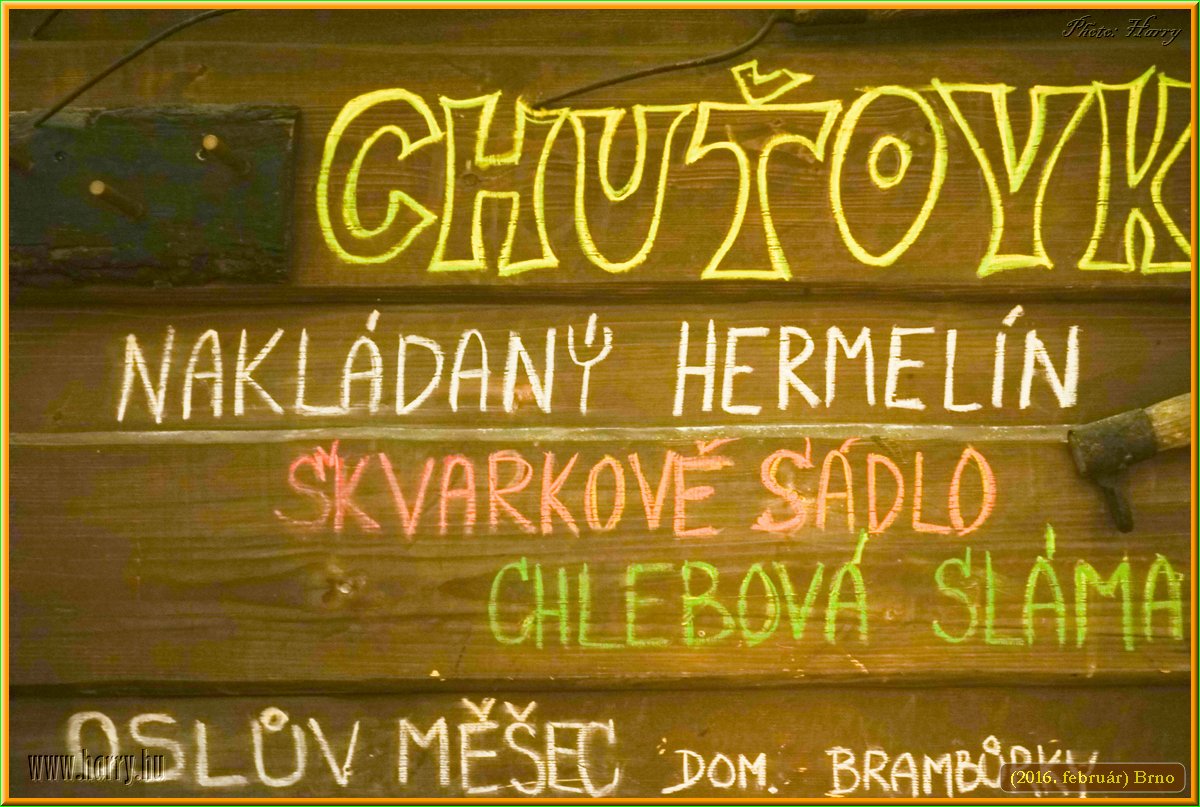 Photo: Harry
CHUŤOVK
NAKLÁDANÝ HERMELÍN
ŠKVARKOVÉ SÁDLO
CHLEBOVÁ SLÁMA
OSLŮV MĚŠEC DOM. BRAMBŮRKY
www.harry.hu
(2016. február) Brno